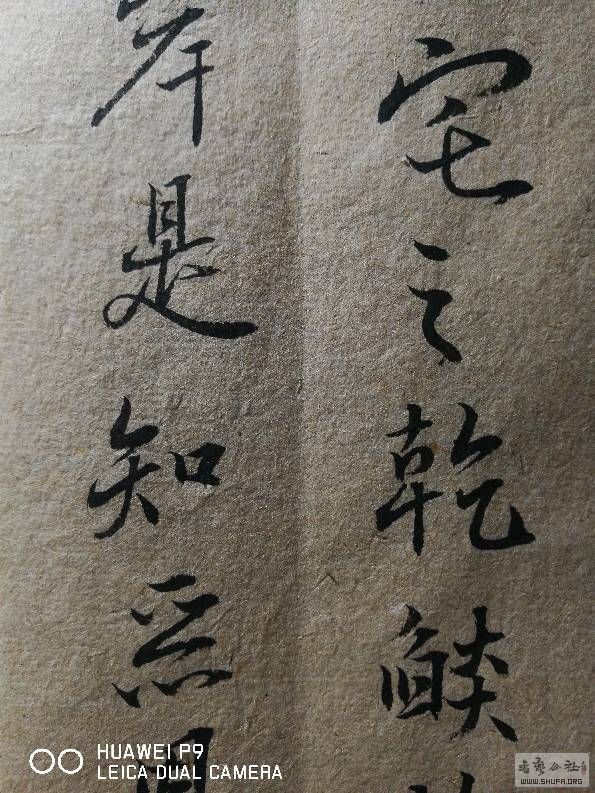 宅之乾燄
岸是知恶因
HUAWEI P9
LEICA DUAL CAMERA
书艺公社
WWW.SHUFA.ORG